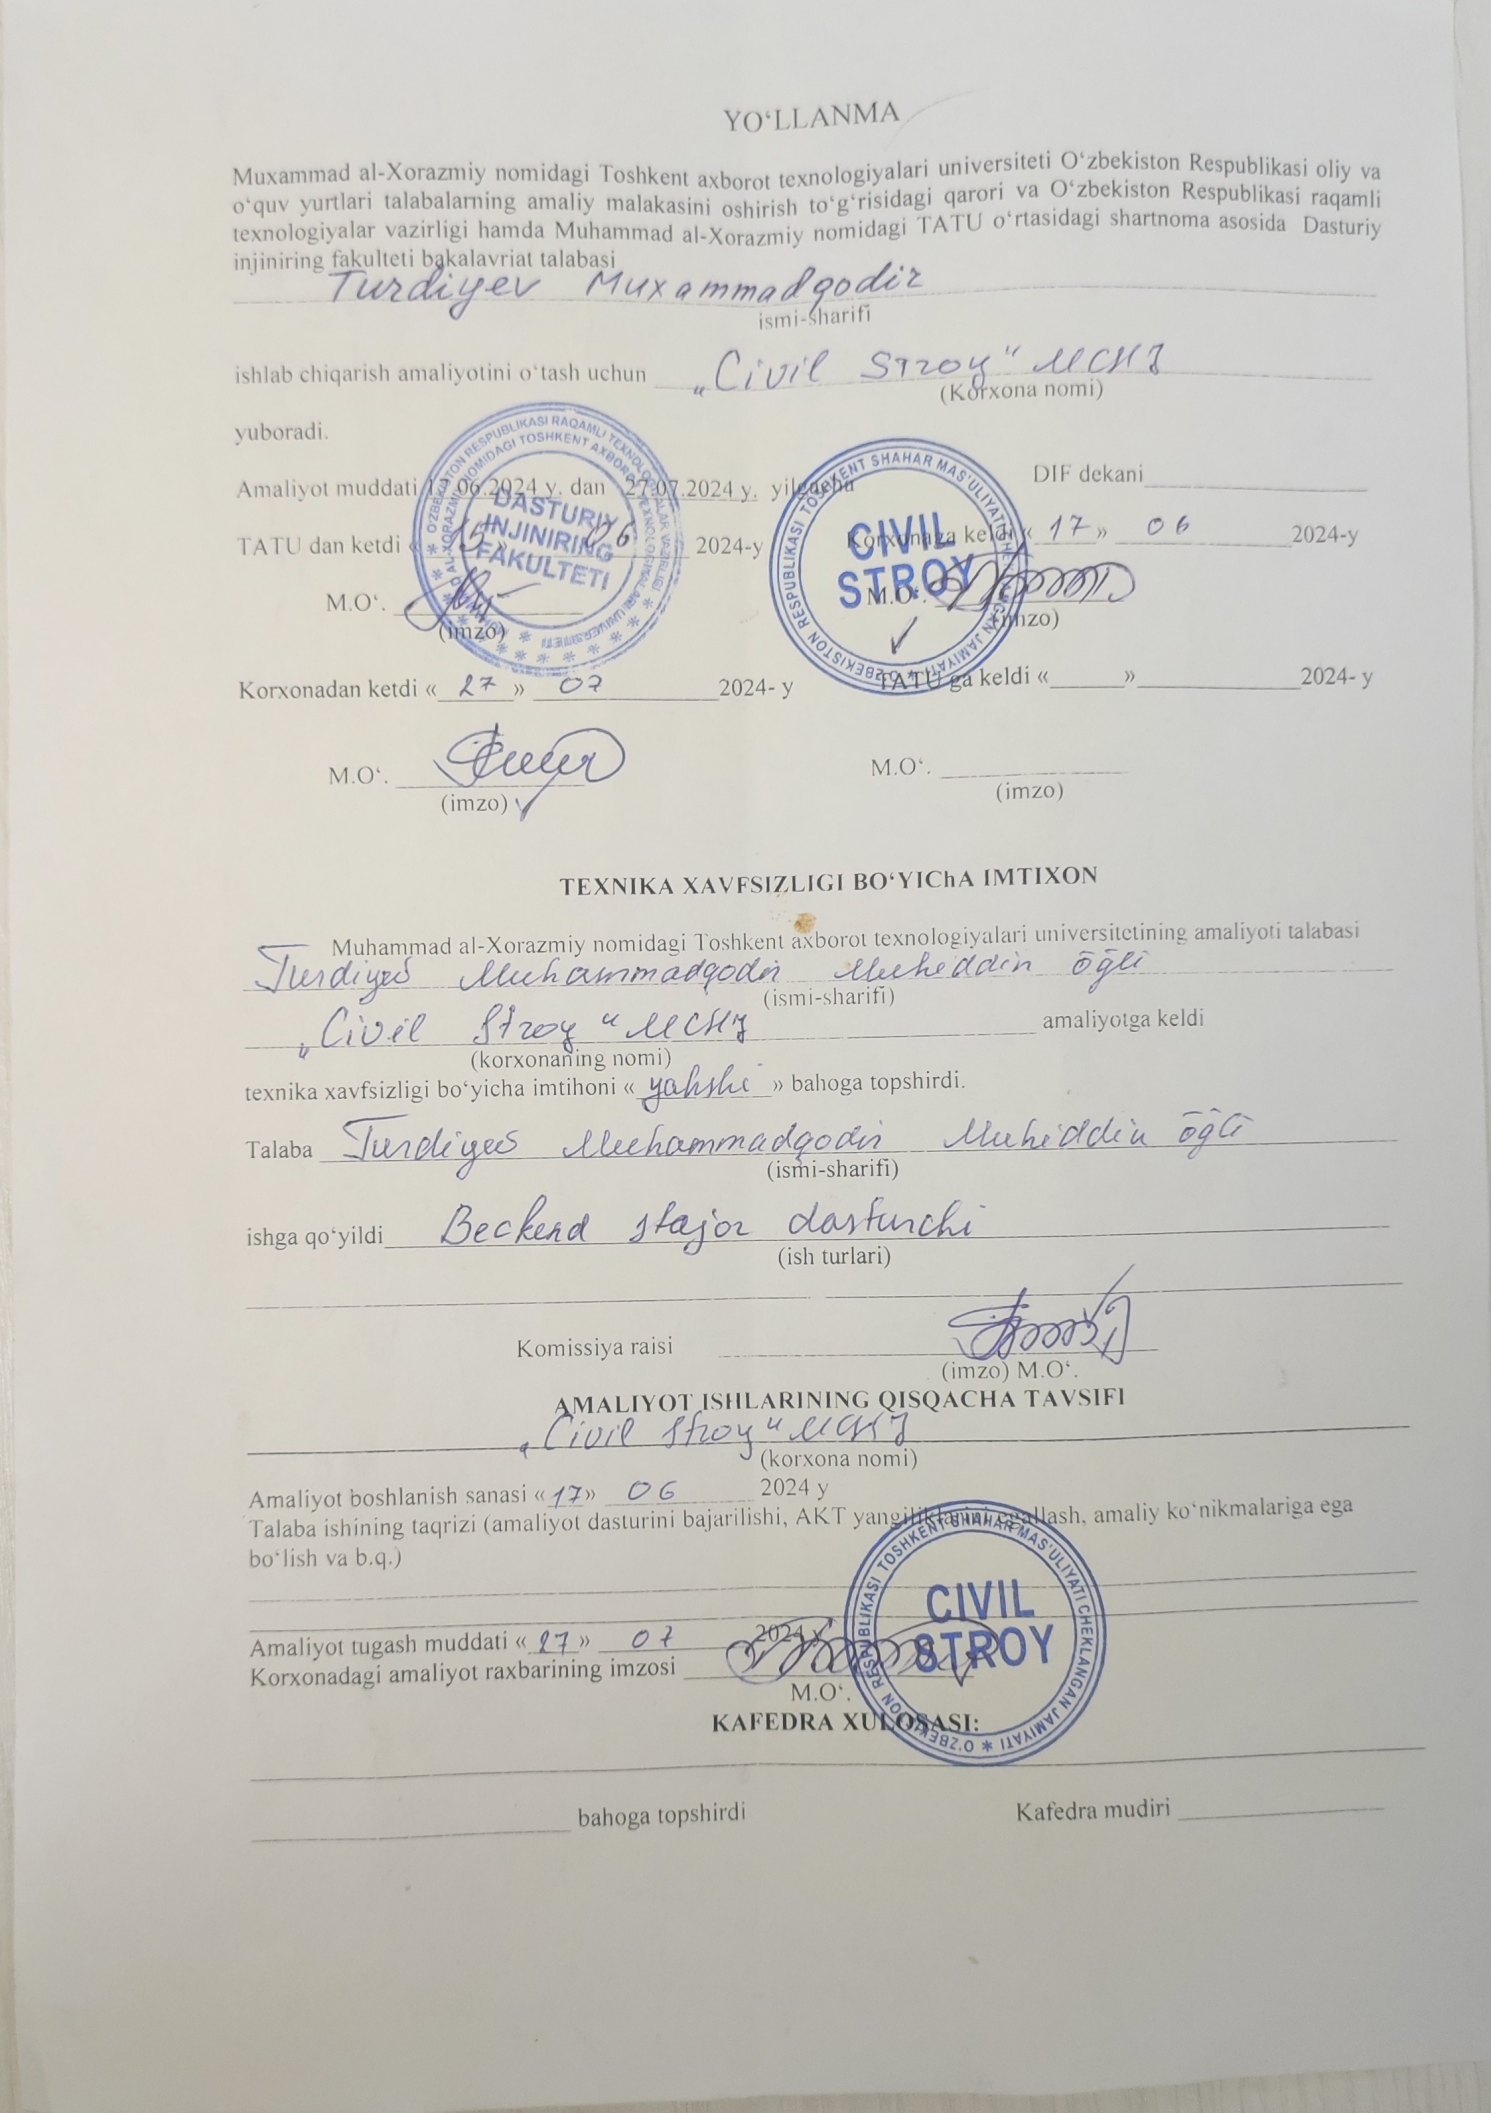 YO‘LLANMA
Muxammad al-Xorazmiy nomidagi Toshkent axborot texnologiyalari universiteti O‘zbekiston Respublikasi oliy va
o‘quv yurtlari talabalarning amaliy malakasini oshirish to‘g‘risidagi qarori va O‘zbekiston Respublikasi raqamli
texnologiyalar vazirligi hamda Muhammad al-Xorazmiy nomidagi TATU o‘rtasidagi shartnoma asosida Dasturiy
injiniring fakulteti bakalavriat talabasi
Turdiyev Muxammadqodir
ismi-sharifi
ishlab chiqarish amaliyotini o‘tash uchun „Civil Stroy“ МСНЗ
(Korxona nomi)
yuboradi.
DIF dekani
Amaliyot muddati 17.06.2024 y. dan 27.07.2024 y. yilgacha
TATU dan ketdi « 15 » 06 2024-y Korxonaga keldi « 17 » 06 2024-y
M.O‘. M.O‘.
(imzo) (imzo)
DASTURIY
INJINIRING
FAKULTETI
O‘ZBEKISTON RESPUBLIKASI TOSHKENT SHAHAR MAS'ULIYATI CHEKLANGAN JAMIYATI
CIVIL
STROY
Korxonadan ketdi « 27 » 07 2024- y TATU ga keldi « » 2024- y
M.O‘. M.O‘.
(imzo) (imzo)
TEXNIKA XAVFSIZLIGI BO‘YIChA IMTIXON
Muhammad al-Xorazmiy nomidagi Toshkent axborot texnologiyalari universitetining amaliyoti talabasi
Turdiyev Muhammadqodir Muhiddin õğli
(ismi-sharifi)
„Civil Stroy“ МСНЗ amaliyotga keldi
(korxonaning nomi)
texnika xavfsizligi bo‘yicha imtihoni « yahshi » bahoga topshirdi.
Talaba Turdiyev Muhammadqodir Muhiddin õğli
(ismi-sharifi)
ishga qo‘yildi Beckend stajor dasturchi
(ish turlari)
Komissiya raisi
(imzo) M.O‘.
AMALIYOT ISHLARINING QISQACHA TAVSIFI
„Civil Stroy“ МСНЗ
(korxona nomi)
Amaliyot boshlanish sanasi « 17 » 06 2024 y
Talaba ishining taqrizi (amaliyot dasturini bajarilishi, AKT yangiliklarini egallash, amaliy ko‘nikmalariga ega
bo‘lish va b.q.)
Amaliyot tugash muddati « 27 » 07 2024 y
Korxonadagi amaliyot raxbarining imzosi
M.O‘.
O‘ZBEKISTON RESPUBLIKASI TOSHKENT SHAHAR MAS'ULIYATI CHEKLANGAN JAMIYATI
CIVIL
STROY
KAFEDRA XULOSASI:
bahoga topshirdi Kafedra mudiri